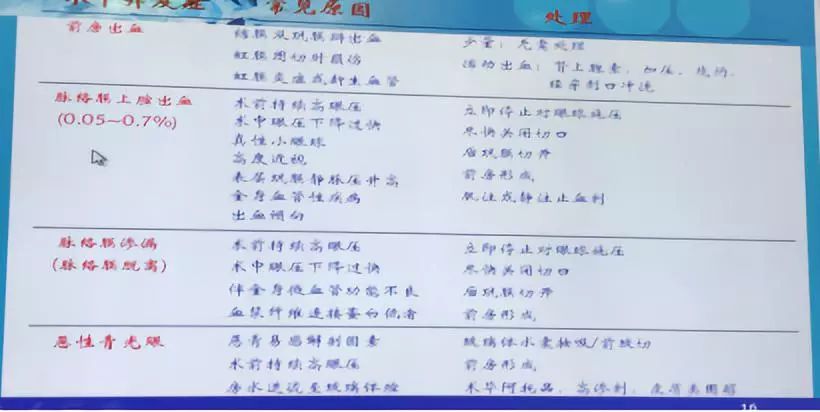 术中并发症 常见原因 处理
前房出血
结膜及巩膜瓣出血
虹膜周切时损伤
虹膜炎症或新生血管
少量：无需处理
活动出血：肾上腺素、加压、烧灼、
经穿刺口冲洗
脉络膜上腔出血
(0.05~0.7%)
术前持续高眼压
术中眼压下降过快
真性小眼球
高度近视
表层巩膜静脉压升高
全身血管性疾病
出血倾向
立即停止对眼球施压
尽快关闭切口
后巩膜切开
前房形成
肌注或静注止血剂
脉络膜渗漏
(脉络膜脱离)
术前持续高眼压
术中眼压下降过快
伴全身微血管功能不良
血浆纤维连接蛋白低者
立即停止对眼球施压
尽快关闭切口
后巩膜切开
前房形成
恶性青光眼
恶青易感解剖因素
术前持续高眼压
房水逆流至玻璃体腔
玻璃体水囊抽吸/前玻切
前房形成
术毕阿托品、高渗剂、皮质类固醇
16